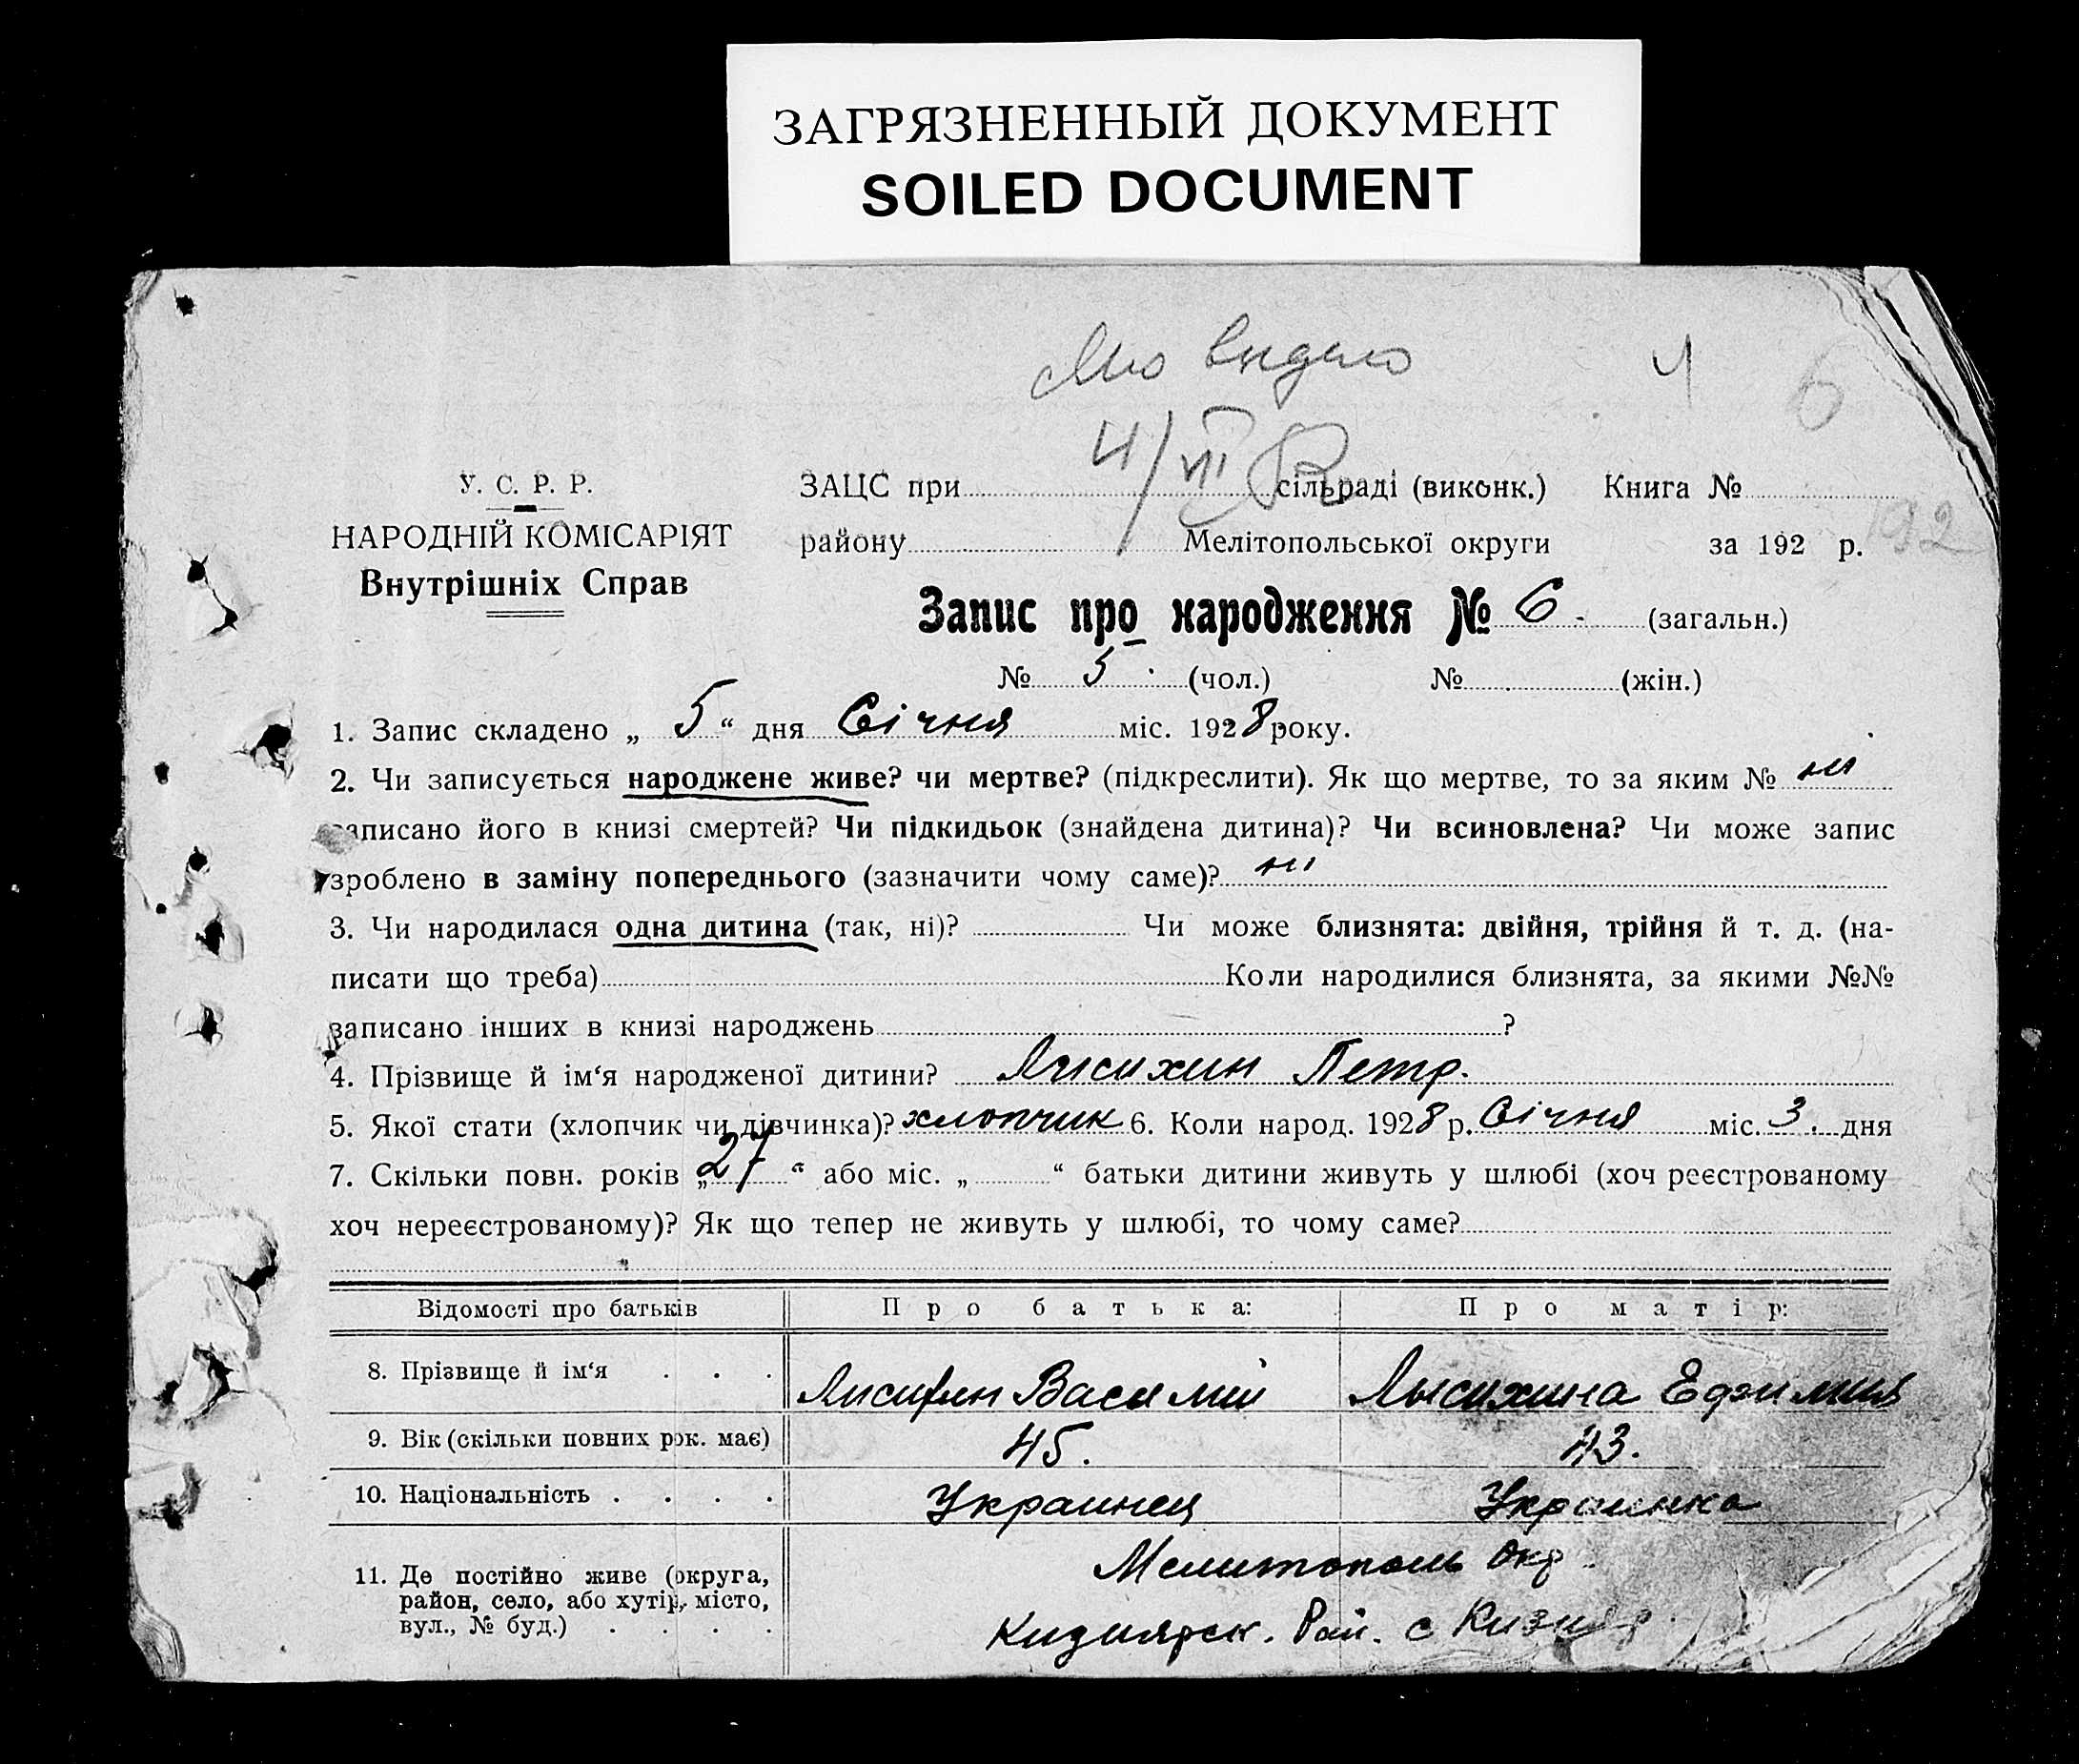 ЗАГРЯЗНЕННЫЙ ДОКУМЕНТ
SOILED DOCUMENT
4 6
У. С. Р. Р.
НАРОДНІЙ КОМІСАРІЯТ
Внутрішніх Справ
ЗАЦС при сільраді (виконк.) Книга №
району Мелітопольської округи за 192 р.
Запис про народження № 6 (загальн.)
№ 5 (чол.) № (жін.)
1. Запис складено „ 5 “ дня Січня міс. 1928 року.
2. Чи записується народжене живе? чи мертве? (підкреслити). Як що мертве, то за яким № ні
записано його в книзі смертей? Чи підкидьок (знайдена дитина)? Чи всиновлена? Чи може запис
зроблено в заміну попереднього (зазначити чому саме)? ні
3. Чи народилася одна дитина (так, ні)? Чи може близнята: двійня, трійня й т. д. (на-
писати що треба) Коли народилися близнята, за якими №№
записано інших в книзі народжень ?
4. Прізвище й ім‘я народженої дитини? Лисихин Петр.
5. Якої стати (хлопчик чи дівчинка)? хлопчик 6. Коли народ. 1928 р. Січня міс. 3. дня
7. Скільки повн. років „ 27 “ або міс. „ “ батьки дитини живуть у шлюбі (хоч реєстрованому
хоч нереєстрованому)? Як що тепер не живуть у шлюбі, то чому саме?
Відомості про батьків Про батька: Про матір:
8. Прізвище й ім‘я . . . Лисихин Василий Лысихина
9. Вік (скільки повних рок. має) 45. 43.
10. Національність . . . . Украинец Украинка
11. Де постійно живе (округа,
район, село, або хутір, місто,
вул., № буд.) . . . .
Мелитополь Окр.
Кизиярск. Рай. с Кизияр